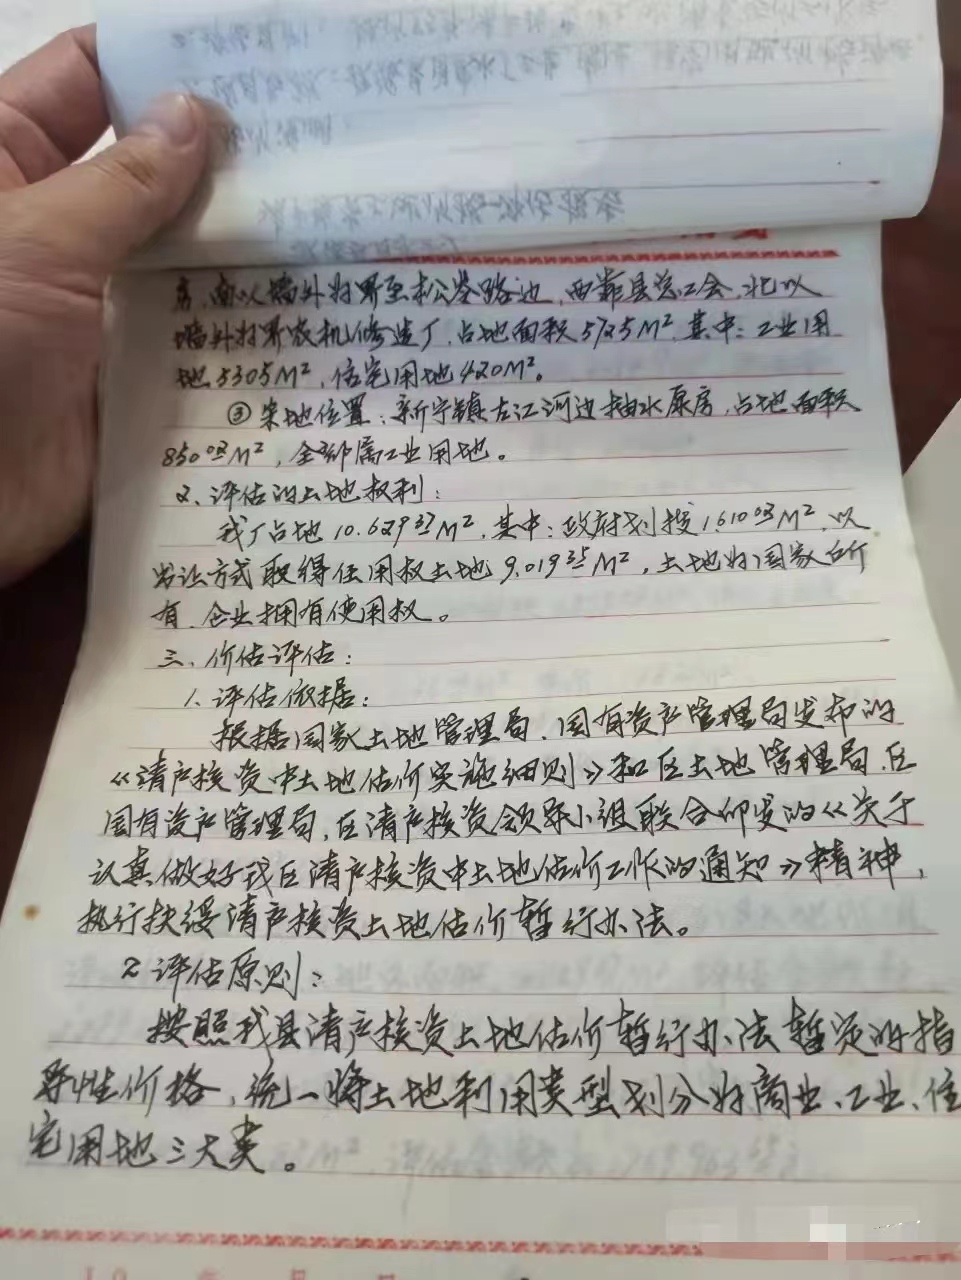 房,南以墙外为界至松岺路边,西靠县总工会,北以
墙外为界农机修造厂,占地面积5725M²,其中:工业用
地5305M²,住宅用地420M²。
③宗地位置:新宁镇左江河边抽水泵房,占地面积
850.00M²,全部属工业用地。
2、评估的土地权利:
我厂占地10.629.35M²,其中:政府划拨1.610.00M²,以
出让方式取得使用权土地9.019.35M²,土地为国家所
有,企业拥有使用权。
三、价估评估:
1、评估依据:
根据国家土地管理局、国有资产管理局发布的
《清产核资中土地估价实施细则》和区土地管理局、区
国有资产管理局,区清产核资领导小组联合印发的《关于
认真做好我区清产核资中土地估价工作的通知》精神,
执行扶绥清产核资土地估价暂行办法。
2、评估原则:
按照我县清产核资土地估价暂行办法暂定的指
导性价格,统一将土地利用类型划分为商业、工业、住
宅用地三大类。